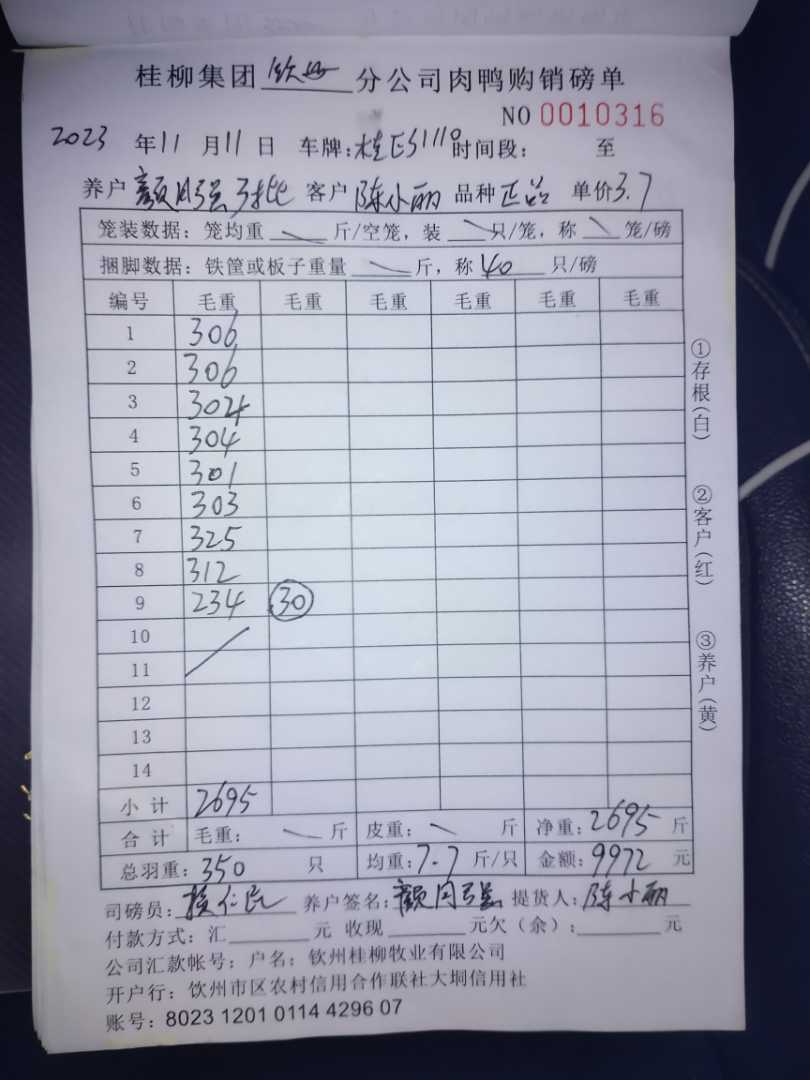 桂柳集团 钦州 分公司肉鸭购销磅单
NO 0010316
2023 年 11 月 11 日 车牌: 时间段: 至
养户 客户 陈小丽 品种 正品 单价 3.7
笼装数据: 笼均重 斤/空笼, 装 只/笼, 称 笼/磅
捆脚数据: 铁筐或板子重量 斤, 称 40 只/磅
编号 毛重 毛重 毛重 毛重 毛重 毛重
1 306
2 306
3 304
4 304
5 301
6 303
7 325
8 312
9 234 30
10
11
12
13
14
小计 2695
合计 毛重: 斤 皮重: 斤 净重: 2695 斤
总羽重: 350 只 均重: 7.7 斤/只 金额: 9972 元
司磅员: 养户签名: 提货人: 陈小丽
付款方式: 汇 元 收现 元欠(余): 元
公司汇款帐号: 户名: 钦州桂柳牧业有限公司
开户行: 钦州市区农村信用合作联社大垌信用社
账号: 8023 1201 0114 4296 07
①存根(白)
②客户(红)
③养户(黄)